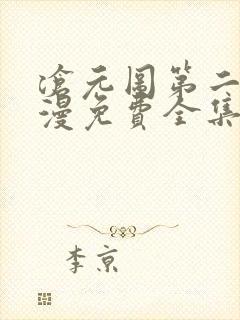 滄元圖第二
漫免費全集
李京